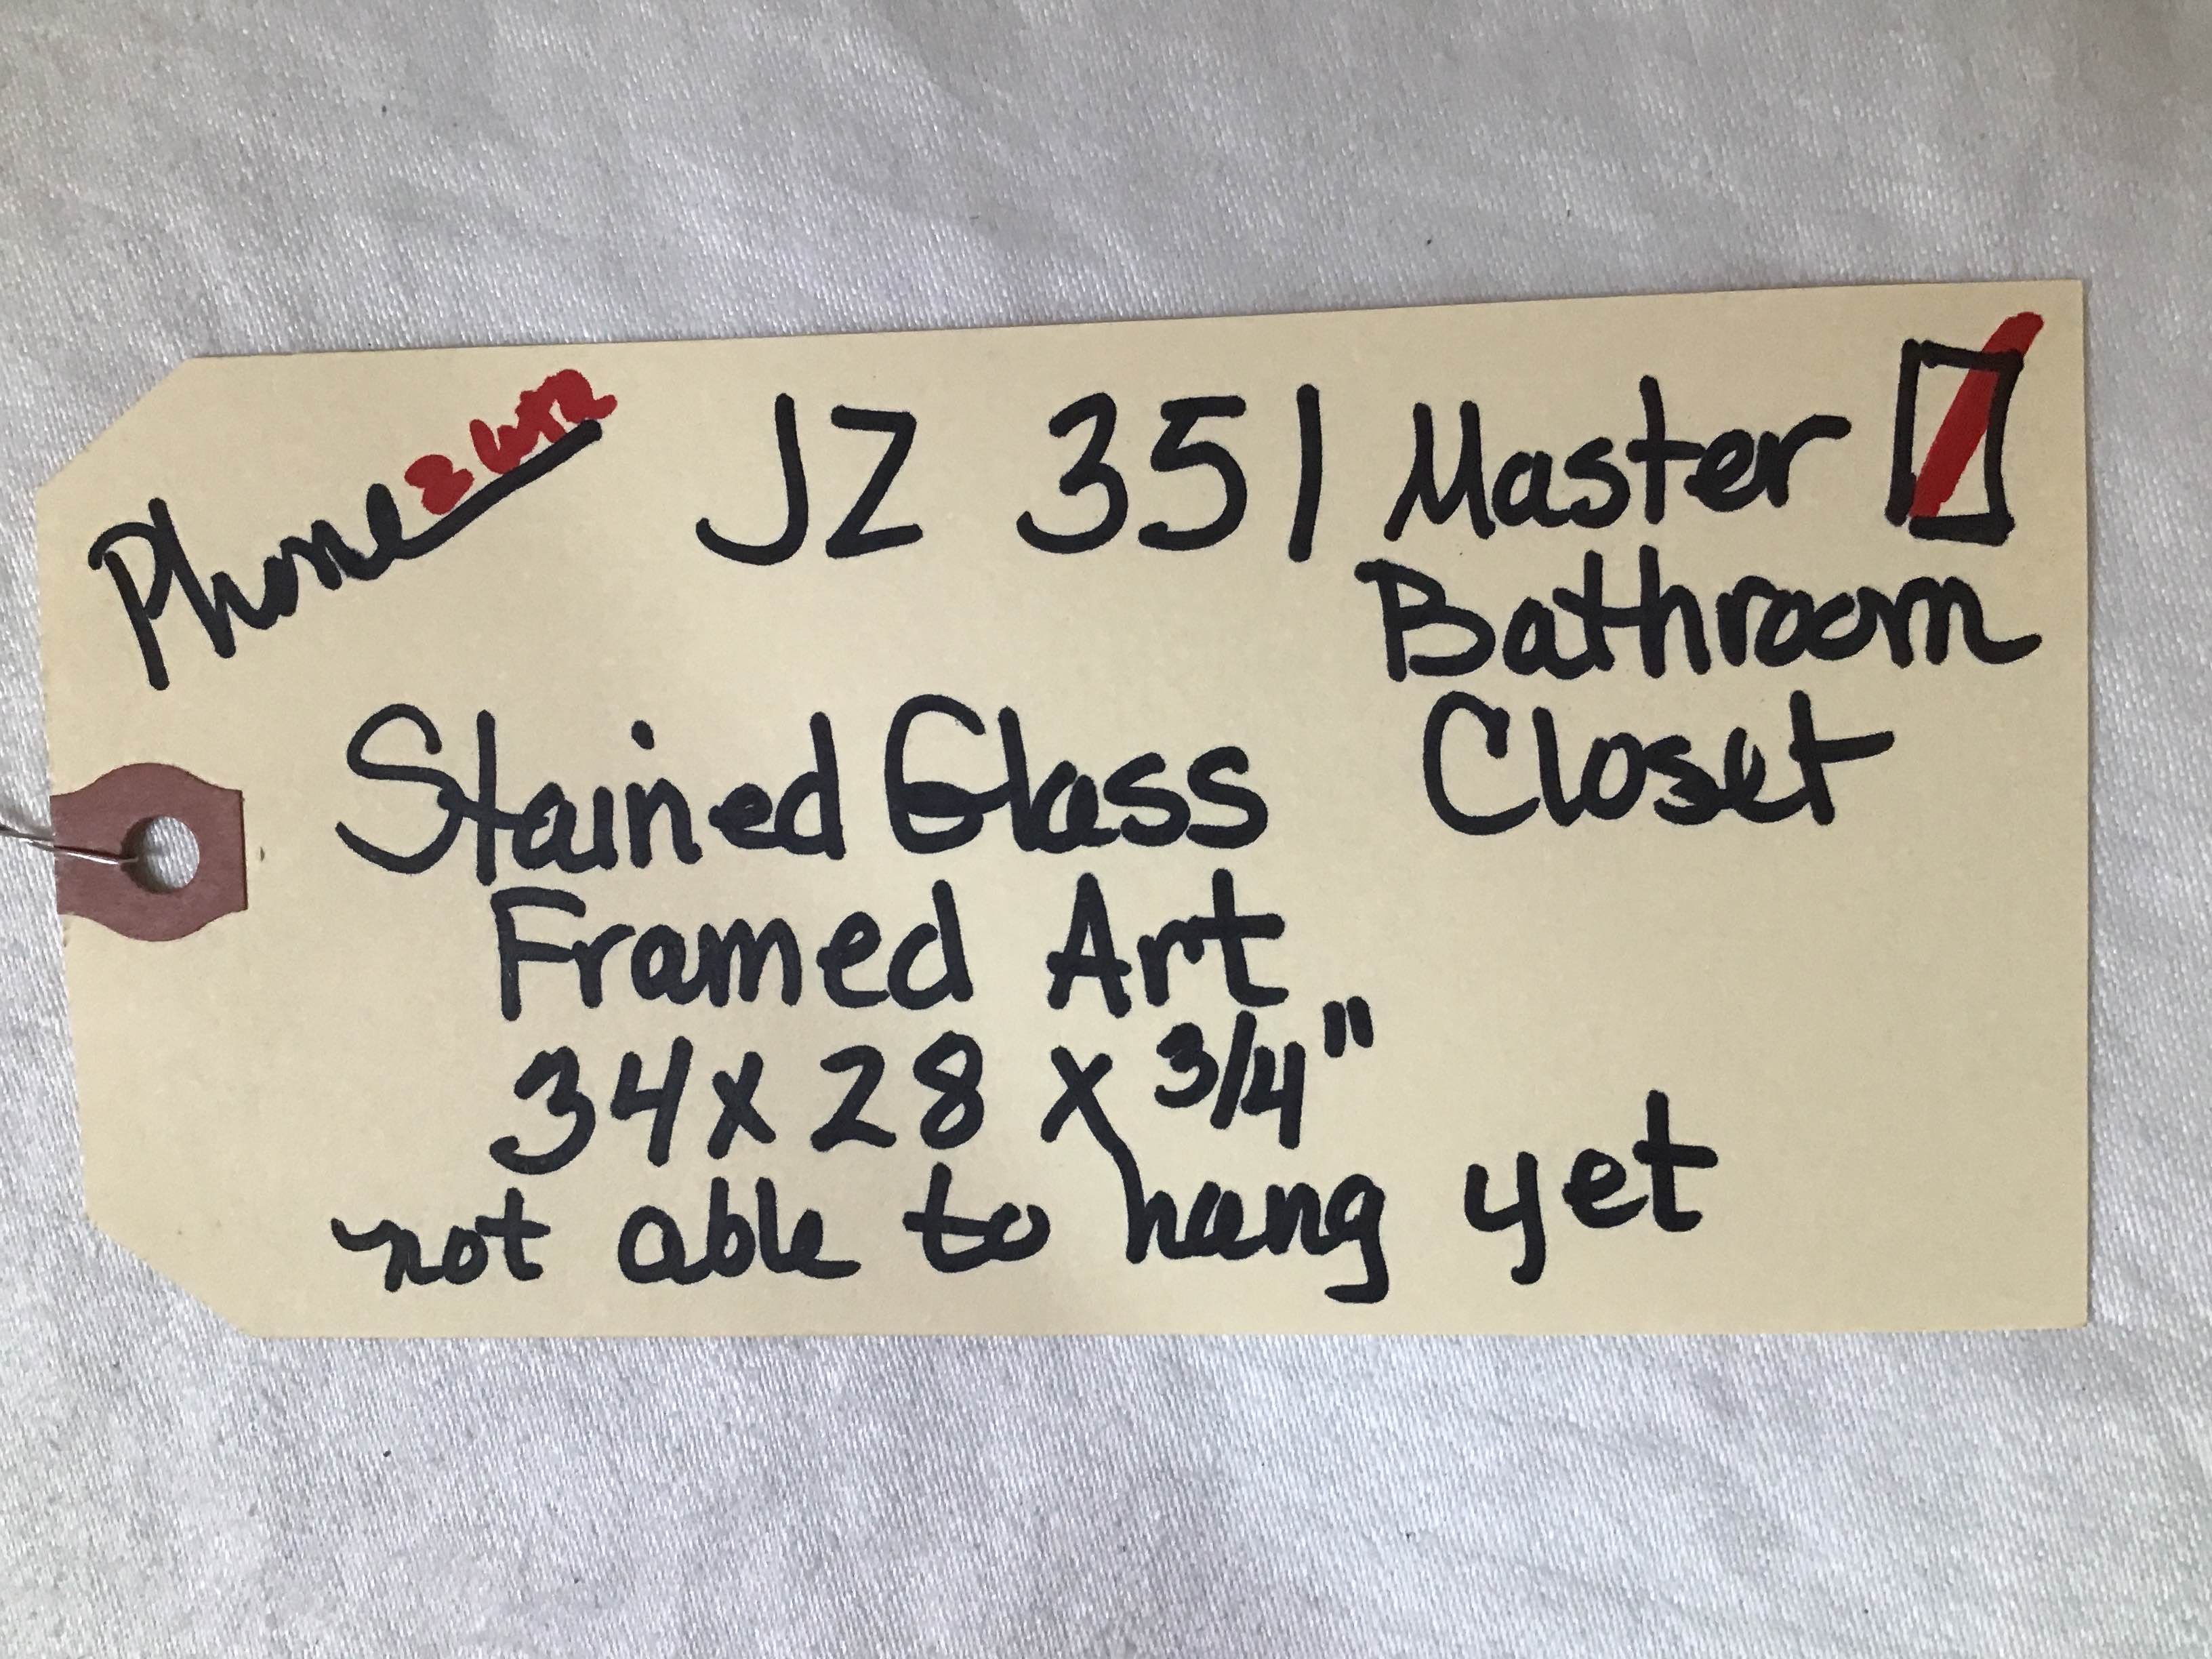 Phone
JZ 351 Master
Bathroom
Closet
Stained Glass
Framed Art
34 x 28 x 3/4"
not able to hang yet